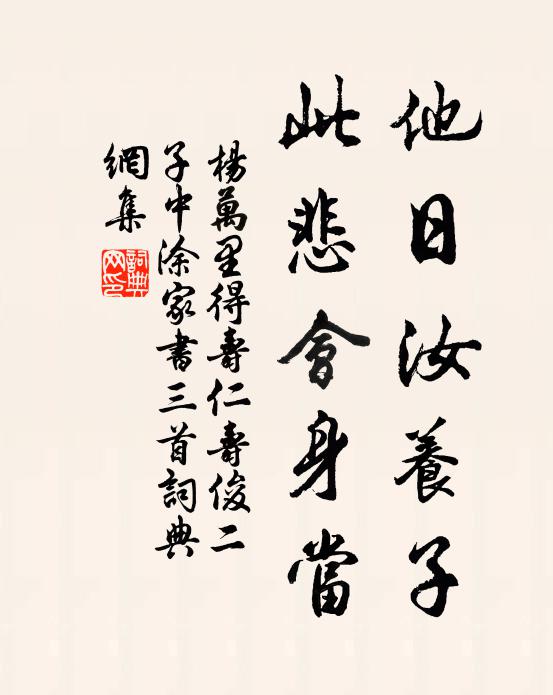 他日汝養子
此悲會身當
楊萬里得壽仁壽俊二
子中涂家書三首詞典
網集
詞典
网印